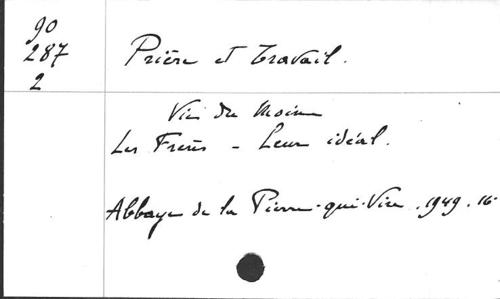 90
287
2
Prière et Travail.
Vie du Moine
Les Frères - Leur idéal.
Abbaye de la Pierre-qui-Vire. 1949. 16°